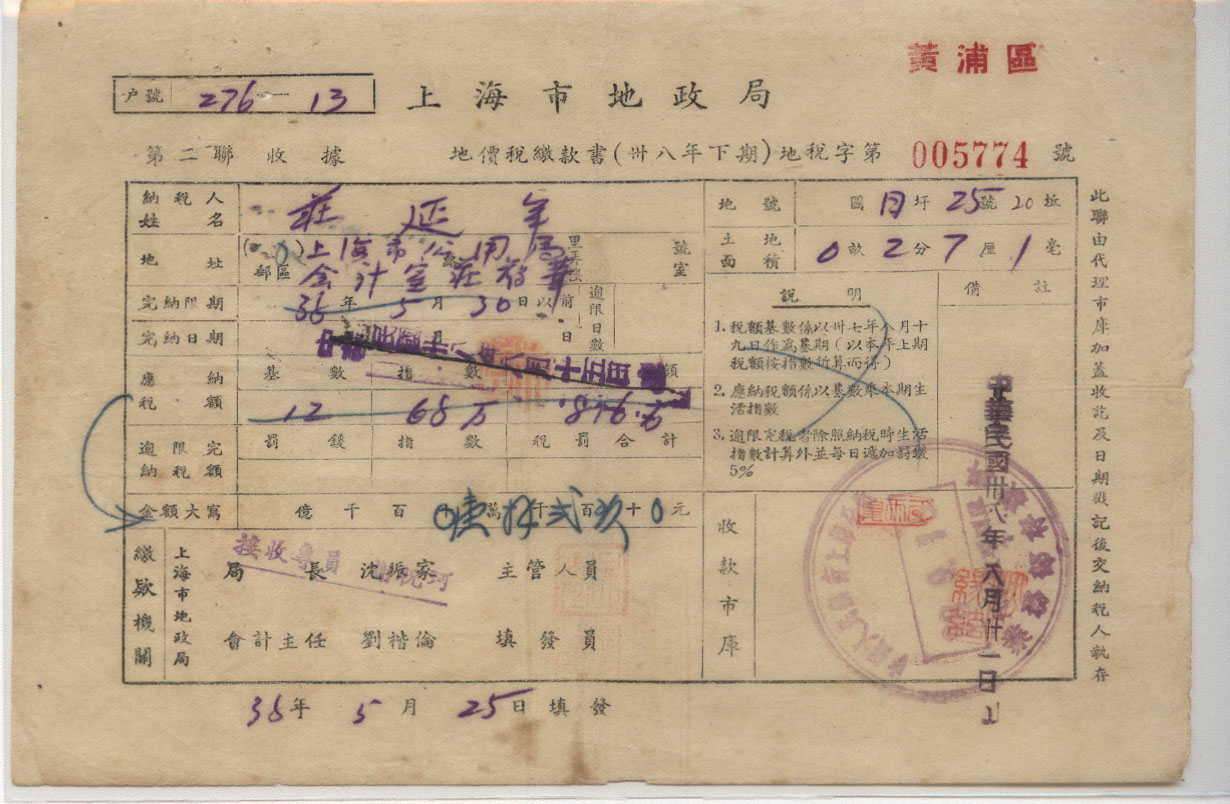 黃浦區
户號 276—13
上海市地政局
第二聯 收據
地價稅繳款書(卅八年下期)地稅字第 005774 號
納稅人姓名 莊延年
地號 圖 坪 25號 20 坵
地址 ( )郵區 上海市公用局 里弄 號室
會計室莊
土地面積 0畝2分7厘1毫
完納限期 38年5月30日以前 逾限日數
完納日期 月 日
說明
備註
1. 稅額基數係以卅七年八月十九日作為基期(以本年上期稅額按指數折算而得)
2. 應納稅額係以基數乘本期生活指數
3. 逾限完稅者除照納稅時生活指數計算外並每日遞加罰鍰5%
應納稅額 基數 指數 額
12 685
逾限完納稅額 罰鍰 指數 稅罰合計
金額大寫 億千百 萬千百十元
收款市庫
中華民國卅八年六月廿一日
繳款機關 上海市地政局
接收專員
局長 沈振家 主管人員
會計主任 劉楷倫 填發員
38年5月25日填發
此聯由代理市庫加蓋收訖及日期戳記後交納稅人執存